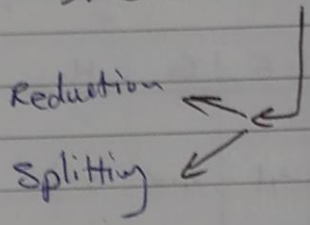 Reduction
Splitting